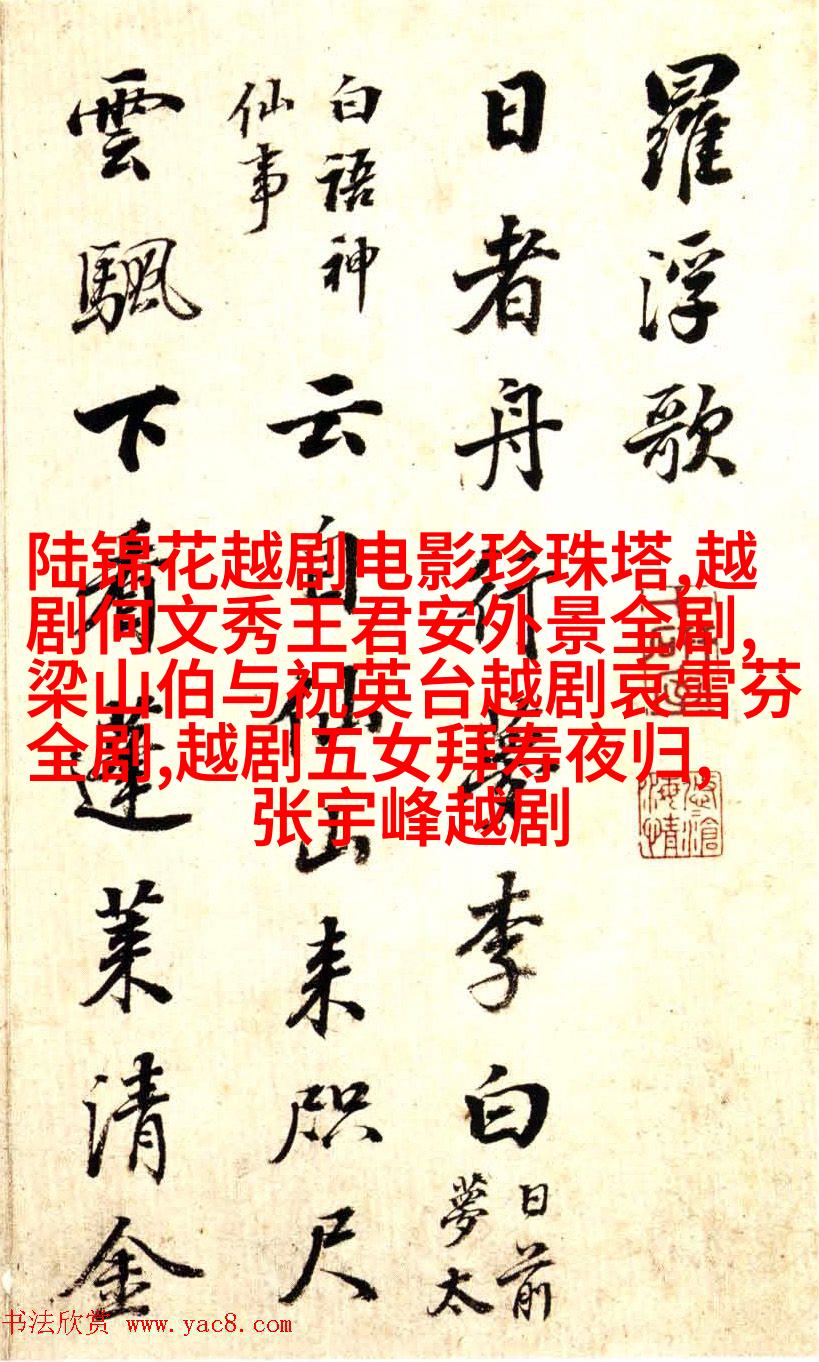 羅浮歌
日者舟行夢李白
日前
夢太
白語神
仙事
云自仙山来咫尺
雲颿下看蓬莱清金
陆锦花越剧电影珍珠塔,越
剧何文秀王君安外景全剧,
梁山伯与祝英台越剧袁雪芬
全剧,越剧五女拜寿夜归,
张宇峰越剧
书法欣赏 www.yac8.com